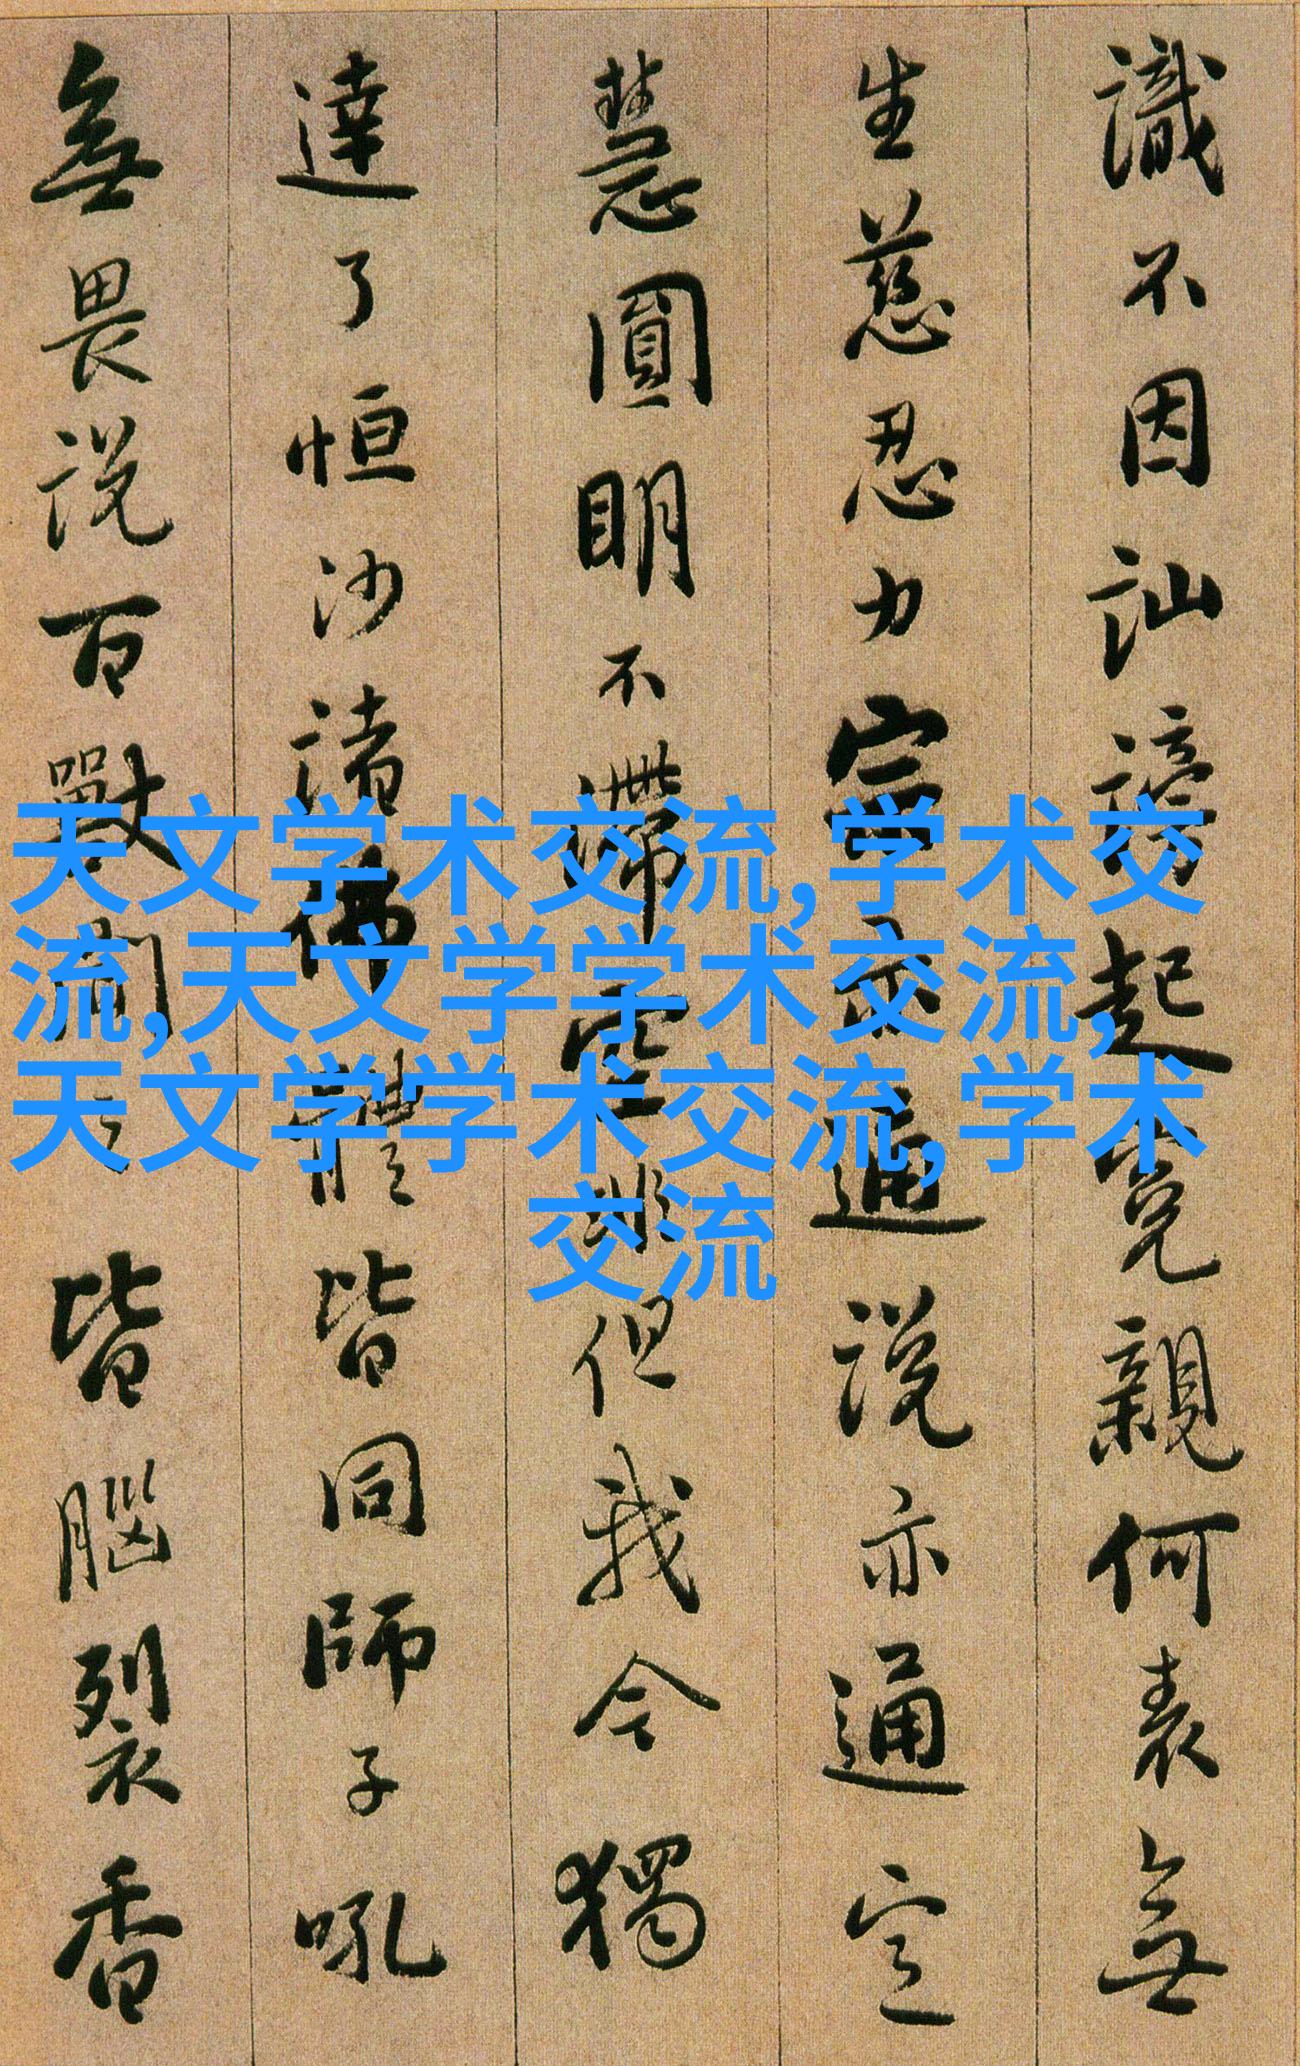 識不因訕謗起寃親何表無
生慈忍力宗亦通說亦通定
慧圓明不滯空非但我今獨
達了恒沙諸佛體皆同師子吼
無畏說百獸聞之皆腦裂香
天文学术交流,学术交
流,天文学学术交流,
天文学学术交流,学术
交流